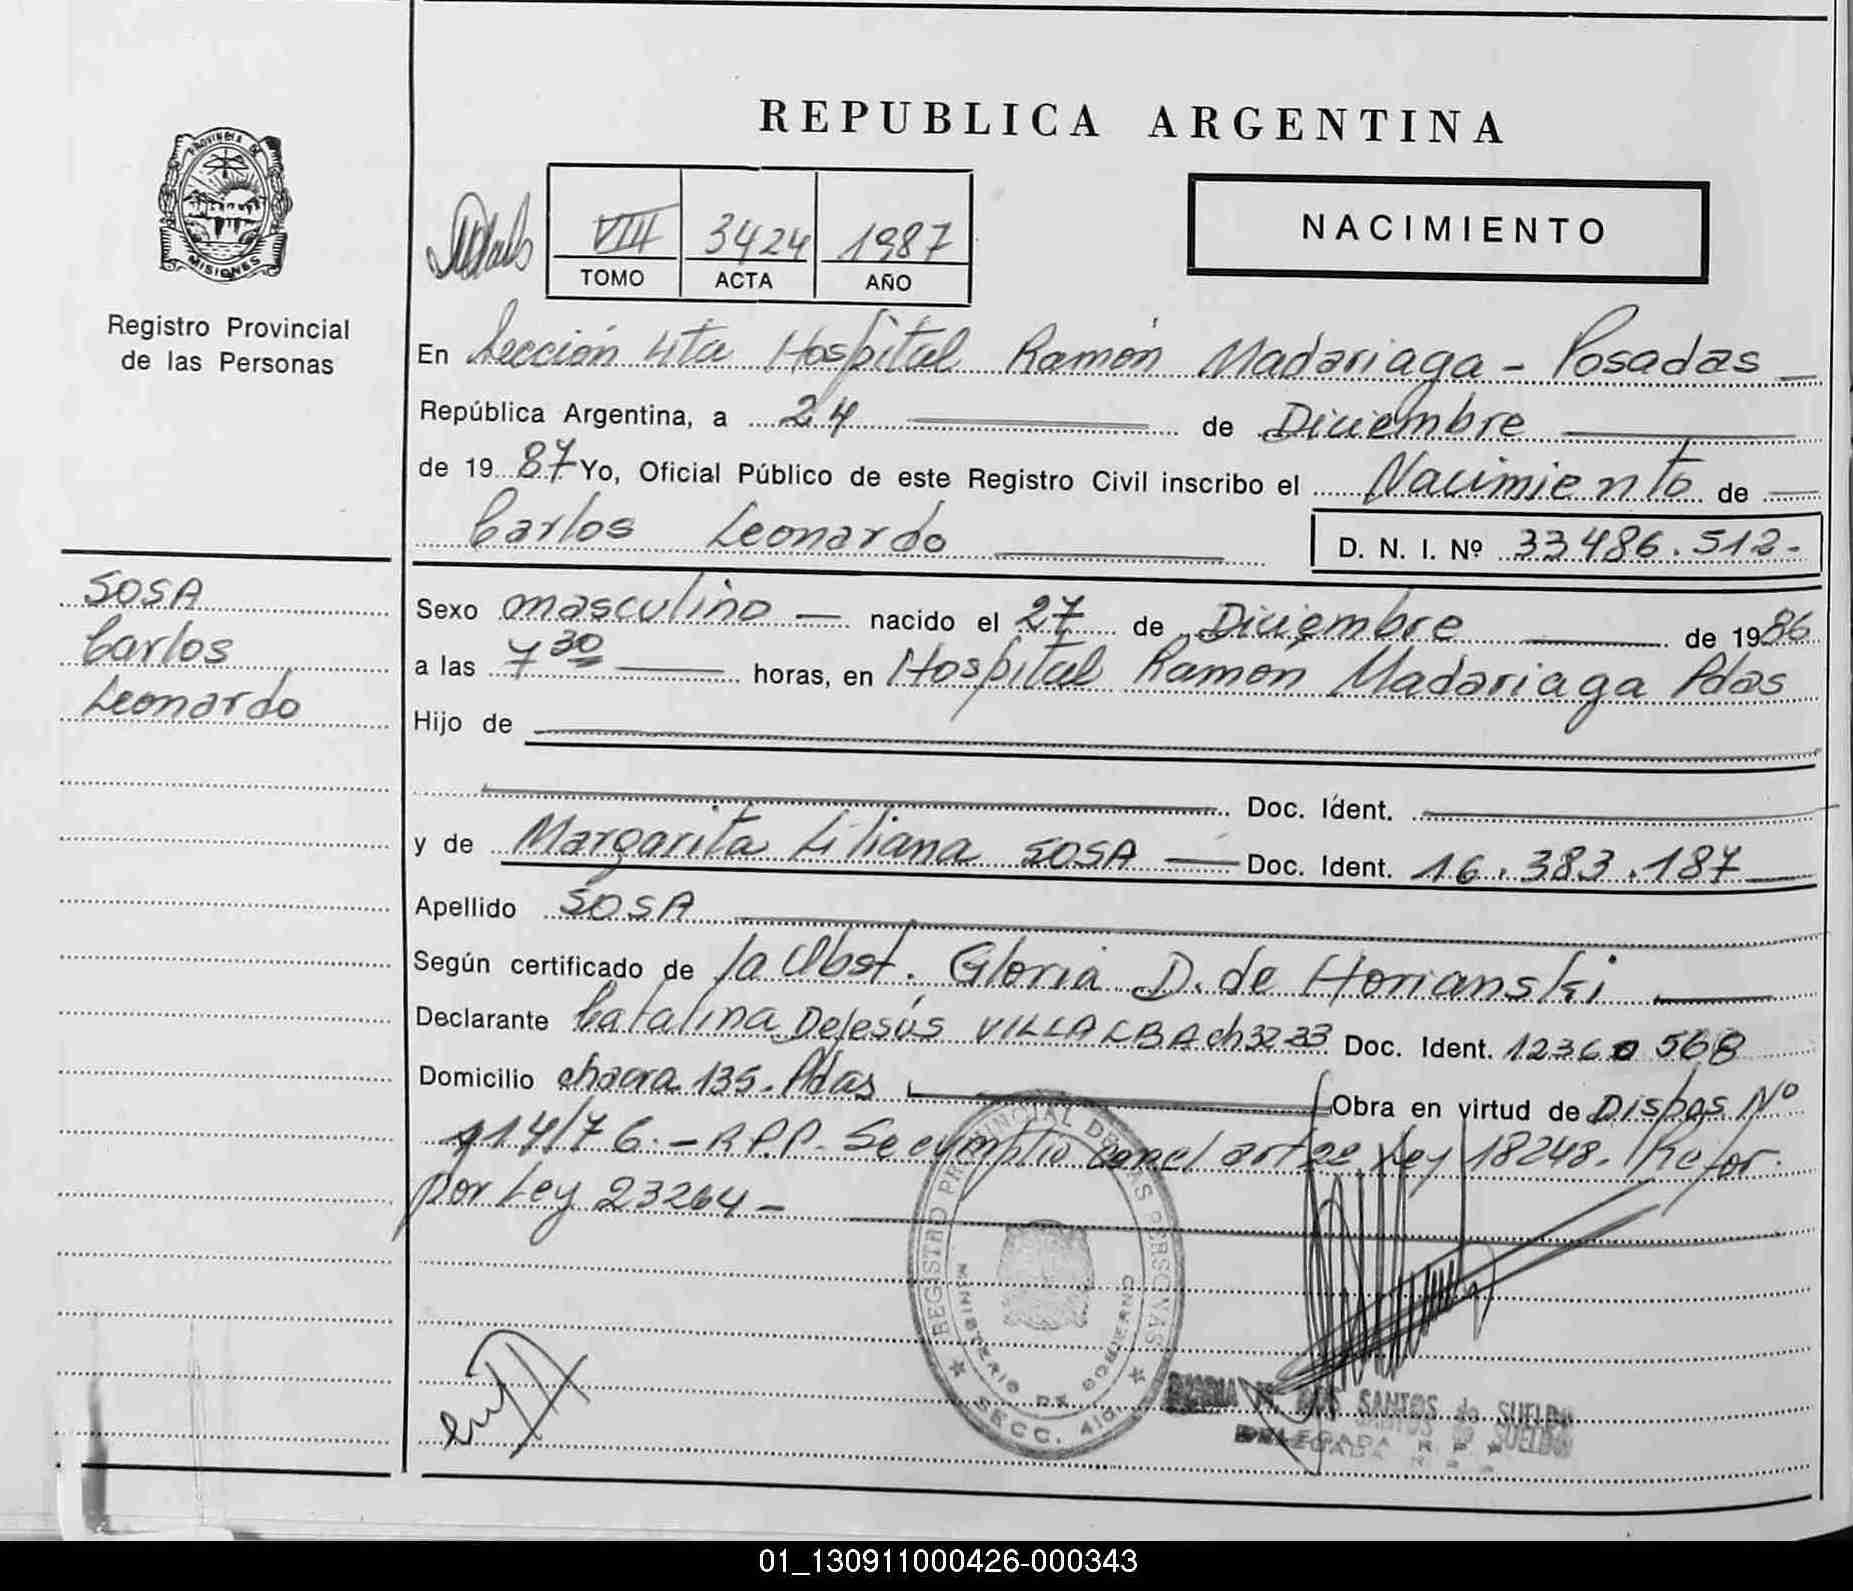 REPUBLICA ARGENTINA
PROVINCIA DE
MISIONES
Registro Provincial
de las Personas
VIII 3424 1987
TOMO ACTA AÑO
NACIMIENTO
En Sección 4ta Hospital Ramón Madariaga - Posadas
República Argentina, a 24 de Diciembre
de 1987 Yo, Oficial Público de este Registro Civil inscribo el Nacimiento de
Carlos Leonardo D. N. I. Nº 33486.512-
SOSA
Carlos
Leonardo
Sexo masculino — nacido el 27 de Diciembre de 1986
a las 7 30 horas, en Hospital Ramón Madariaga Pdas
Hijo de
Doc. Ident.
y de Margarita Liliana SOSA — Doc. Ident. 16.383.187
Apellido SOSA
Según certificado de la Obst. Gloria D. de Horianski
Declarante Catalina DeJesús VILLALBA ch 32 33 Doc. Ident. 12360 568
Domicilio chacra 135. Pdas Obra en virtud de Dispos Nº
114/76.- R.P.P. Se cumplio con el art Ley 18248. Refor.
por Ley 23264 -
REGISTRO PROVINCIAL DE LAS PERSONAS
MINISTERIO DE GOBIERNO
SECC. 4ta
SANTOS de SUELDO
DELEGADA R. P. P.
01_130911000426-000343